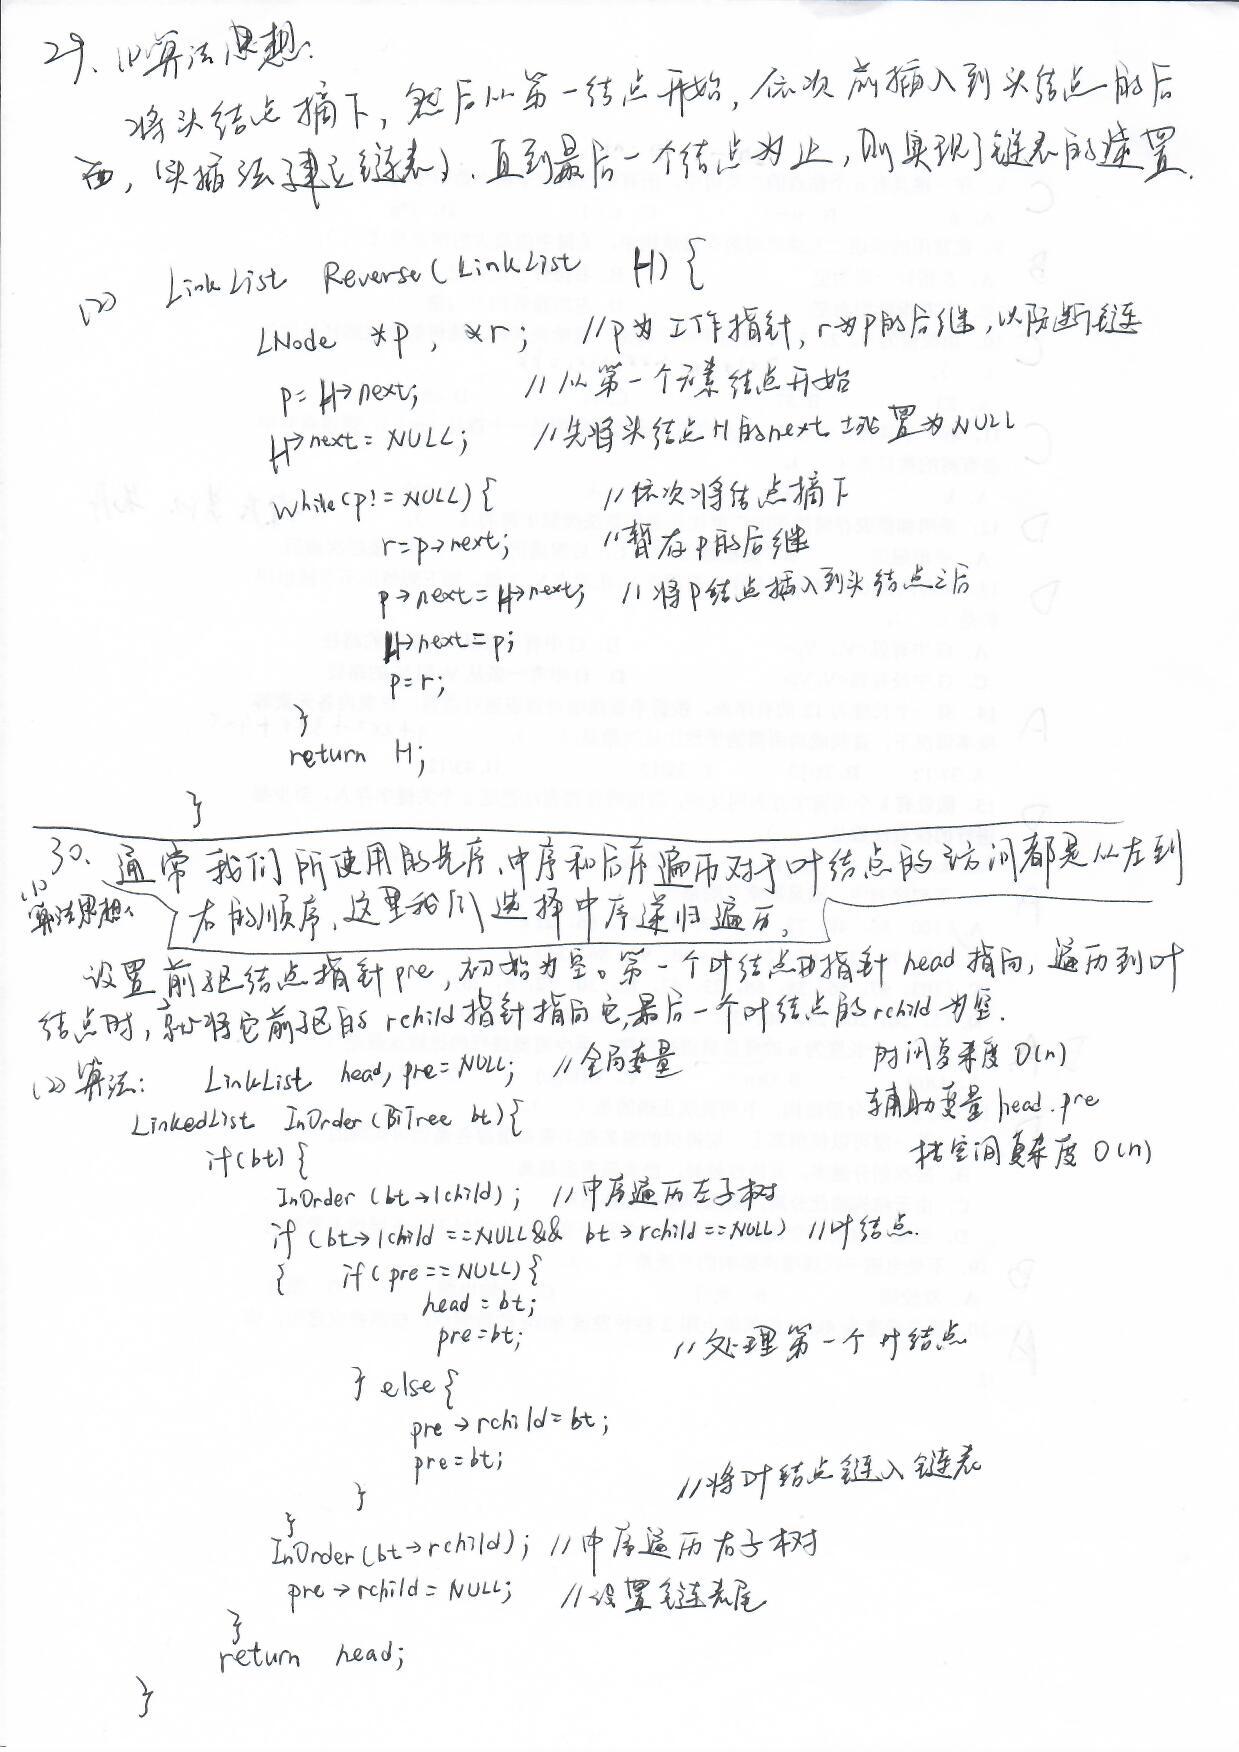 29、(1)算法思想:
将头结点摘下,然后从第一结点开始,依次前插入到头结点的后
面,(头插法建立链表),直到最后一个结点为止,则实现了链表的逆置.
(2) LinkList Reverse(LinkList H){
LNode *p, *r; //p为工作指针,r为p的后继,以防断链
p=H→next; //从第一个元素结点开始
H→next=NULL; //先将头结点H的next域置为NULL
while(p!=NULL){ //依次将结点摘下
r=p→next; //暂存p的后继
p→next=H→next; //将P结点插入到头结点之后
H→next=p;
p=r;
}
return H;
}
30、通常我们所使用的先序、中序和后序遍历对于叶结点的访问都是从左到
(1)算法思想: 右的顺序,这里我们选择中序递归遍历,
设置前驱结点指针pre,初始为空。第一个叶结点由指针head指向,遍历到叶
结点时,就将它前驱的rchild指针指向它,最后一个叶结点的rchild为空.
(2)算法: LinkList head, pre=NULL; //全局变量 时间复杂度O(n)
LinkedList InOrder(BiTree bt){ 辅助变量head.pre
if(bt){ 栈空间复杂度O(n)
InOrder(bt→lchild); //中序遍历左子树
if(bt→lchild==NULL&& bt→rchild==NULL) //叶结点.
{ if(pre==NULL){
head=bt;
pre=bt; //处理第一个叶结点
} else{
pre→rchild=bt;
pre=bt;
} //将叶结点链入链表
}
InOrder(bt→rchild); //中序遍历右子树
pre→rchild=NULL; //设置链表尾
}
return head;
}